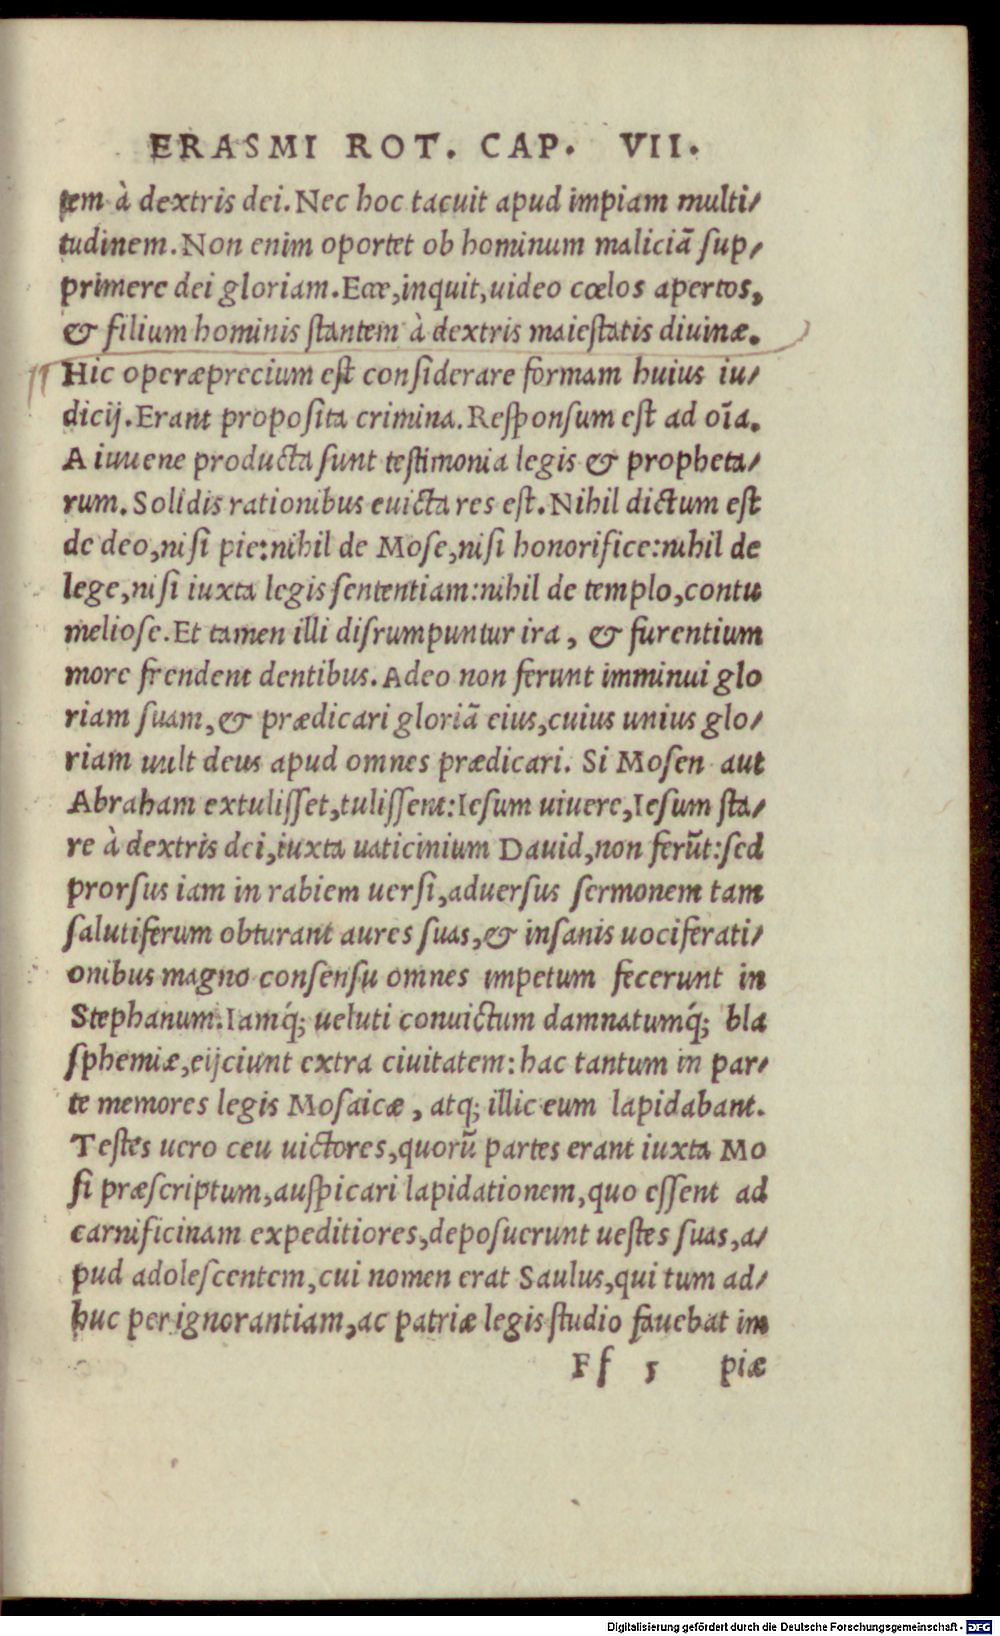 ERASMI ROT. CAP. VII.
tem à dextris dei. Nec hoc tacuit apud impiam multi/
tudinem. Non enim oportet ob hominum maliciā ſup/
primere dei gloriam. Ecce, inquit, uideo cœlos apertos,
& filium hominis ſtantem à dextris maieſtatis diuinæ.
Hic operæprecium eſt conſiderare formam huius iu/
dicij. Erant propoſita crimina. Reſponſum eſt ad oīa.
A iuuene producta ſunt teſtimonia legis & propheta/
rum. Solidis rationibus euicta res eſt. Nihil dictum eſt
de deo, niſi pie: nihil de Moſe, niſi honorifice: nihil de
lege, niſi iuxta legis ſententiam: nihil de templo, contu
melioſe. Et tamen illi diſrumpuntur ira, & furentium
more frendent dentibus. Adeo non ferunt imminui glo
riam ſuam, & prædicari gloriā eius, cuius unius glo/
riam uult deus apud omnes prædicari. Si Moſen aut
Abraham extuliſſet, tuliſſent: Ieſum uiuere, Ieſum ſta/
re à dextris dei, iuxta uaticinium Dauid, non ferūt: ſed
prorſus iam in rabiem uerſi, aduerſus ſermonem tam
ſalutiferum obturant aures ſuas, & inſanis uociferati/
onibus magno conſenſu omnes impetum fecerunt in
Stephanum. Iamq́; ueluti conuictum damnatumq́; bla
ſphemiæ, eijciunt extra ciuitatem: hac tantum in par/
te memores legis Moſaicæ, atq; illic eum lapidabant.
Teſtes uero ceu uictores, quorū partes erant iuxta Mo
ſi præſcriptum, auſpicari lapidationem, quo eſſent ad
carnificinam expeditiores, depoſuerunt ueſtes ſuas, a/
pud adoleſcentem, cui nomen erat Saulus, qui tum ad/
huc per ignorantiam, ac patriæ legis ſtudio fauebat im
Ff 5 piæ
Digitalisierung gefördert durch die Deutsche Forschungsgemeinschaft - DFG